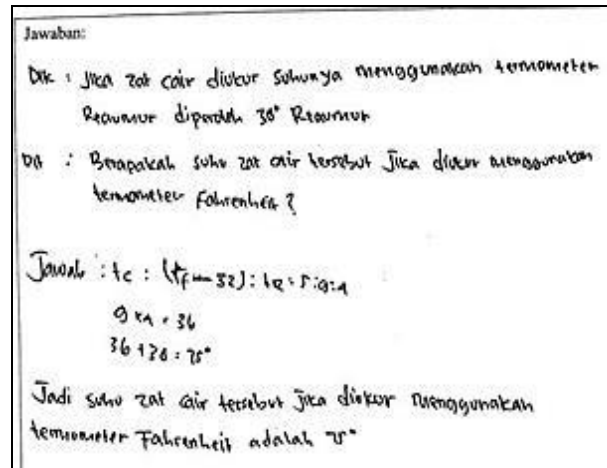 Jawaban:
Dik : Jika zat cair diukur suhunya menggunakan termometer
Reaumur diperoleh 38° Reaumur
Dit : Berapakah suhu zat cair tersebut jika diukur menggunakan
termometer Fahrenheit ?
Jawab : tc : (tf - 32) : tR = 5:9:4
9 x 4 = 36
36 + 38 = 75°
Jadi suhu zat cair tersebut jika diukur menggunakan
termometer Fahrenheit adalah 75°